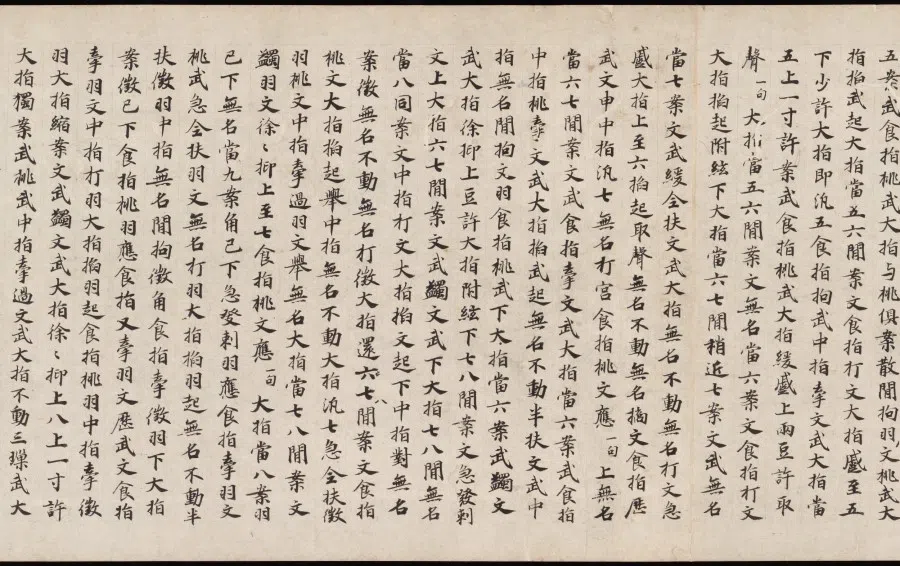 五案武食指挑武大指与挑俱案散間拘羽文挑武大
指掐武起大指當五六間案文食指打文大指蹙至五
下少許大指即汎五食指拘武中指牽文武大指當
五上一寸許案武食指挑武大指緩蹙上兩豆許取
聲一句大指當五六間案文無名當六案文食指打文
大指掐起附絃下大指當六七間稍近七案文武無名
當七案文武緩全扶文武大指無名不動無名打文急
蹙大指上至六掐起取聲無名不動無名擿文食指歷
武文申中指汎七無名打宮食指挑文應一句上無名
當六七間案文武食指牽文武大指當六案武食指
中指挑牽文武大指掐武起無名不動半扶文武中
指無名間拘文羽食指挑武下大指當六案武蠲文
武大指徐抑上豆許大指附絃下七八間案文急發剌
文上大指六七間案文武蠲文武下大指七八間無名
當八同案文中指打文大指掐文起下中指對無名
案徵無名不動無名打徵大指還六七八間案文食指
挑文大指掐起舉中指無名不動大指汎七急全扶徵
羽挑文中指牽過羽文舉無名大指當七八間案文
蠲羽文徐〻抑上至七食指挑文應一句大指當八案羽
已下無名當九案角已下急發剌羽應食指牽羽文
挑武急全扶羽文無名打羽大指掐羽起無名不動半
扶徵羽中指無名間拘徵角食指牽徵羽下大指
案徵已下食指挑羽應食指又牽羽文歷武文食指
牽羽文中指打羽大指掐羽起食指挑羽中指牽徵
羽大指縮案文武蠲文武大指徐〻抑上八上一寸許
大指獨案武挑武中指牽過文武大指不動三璅武大